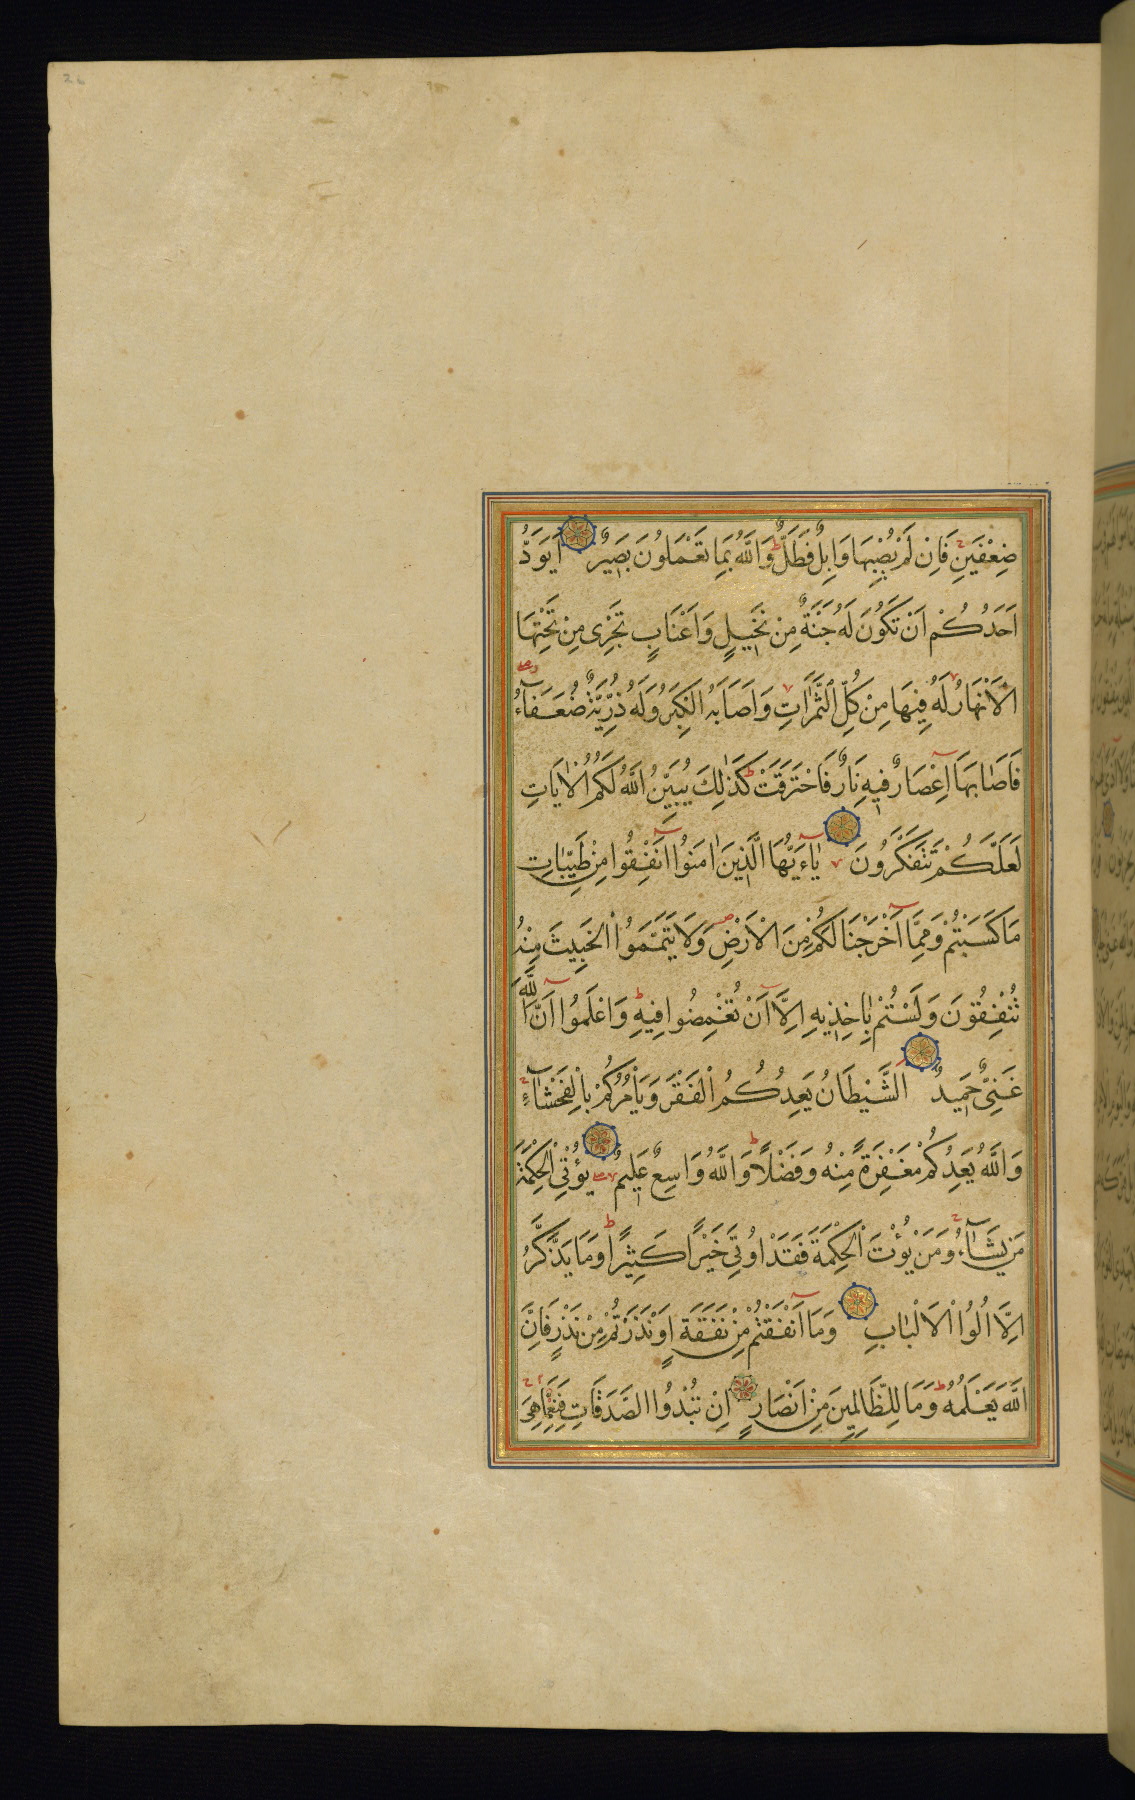 ضِعْفَيْنِ فَاِنْ لَمْ يُصِبْهَا وَابِلٌ فَطَلٌّ وَاللّٰهُ بِمَا تَعْمَلُونَ بَصِيرٌ اَيَوَدُّ
اَحَدُكُمْ اَنْ تَكُونَ لَهُ جَنَّةٌ مِنْ نَخِيلٍ وَاَعْنَابٍ تَجْرِى مِنْ تَحْتِهَا
الْاَنْهَارُ لَهُ فِيهَا مِنْ كُلِّ الثَّمَرَاتِ وَاَصَابَهُ الْكِبَرُ وَلَهُ ذُرِّيَّةٌ ضُعَفَآءُ
فَاَصَابَهَا اِعْصَارٌ فِيهِ نَارٌ فَاحْتَرَقَتْ كَذٰلِكَ يُبَيِّنُ اللّٰهُ لَكُمُ الْاٰيَاتِ
لَعَلَّكُمْ تَتَفَكَّرُونَ يَٓاءَيُّهَا الَّذِينَ اٰمَنُوا اَنْفِقُوا مِنْ طَيِّبَاتِ
مَا كَسَبْتُمْ وَمِمَّا اَخْرَجْنَا لَكُمْ مِنَ الْاَرْضِ وَلَا تَيَمَّمُوا الْخَبِيثَ مِنْهُ
تُنْفِقُونَ وَلَسْتُمْ بِاٰخِذِيهِ اِلَّا اَنْ تُغْمِضُوا فِيهِ وَاعْلَمُوا اَنَّ اللّٰهَ
غَنِيٌّ حَمِيدٌ اَلشَّيْطَانُ يَعِدُكُمُ الْفَقْرَ وَيَأْمُرُكُمْ بِالْفَحْشَآءِ
وَاللّٰهُ يَعِدُكُمْ مَغْفِرَةً مِنْهُ وَفَضْلًا وَاللّٰهُ وَاسِعٌ عَلِيمٌ يُؤْتِي الْحِكْمَةَ
مَنْ يَشَآءُ وَمَنْ يُؤْتَ الْحِكْمَةَ فَقَدْ اُوتِيَ خَيْرًا كَثِيرًا وَمَا يَذَّكَّرُ
اِلَّا اُولُوا الْاَلْبَابِ وَمَا اَنْفَقْتُمْ مِنْ نَفَقَةٍ اَوْ نَذَرْتُمْ مِنْ نَذْرٍ فَاِنَّ
اللّٰهَ يَعْلَمُهُ وَمَا لِلظَّالِمِينَ مِنْ اَنْصَارٍ اِنْ تُبْدُوا الصَّدَقَاتِ فَنِعِمَّا هِىَ